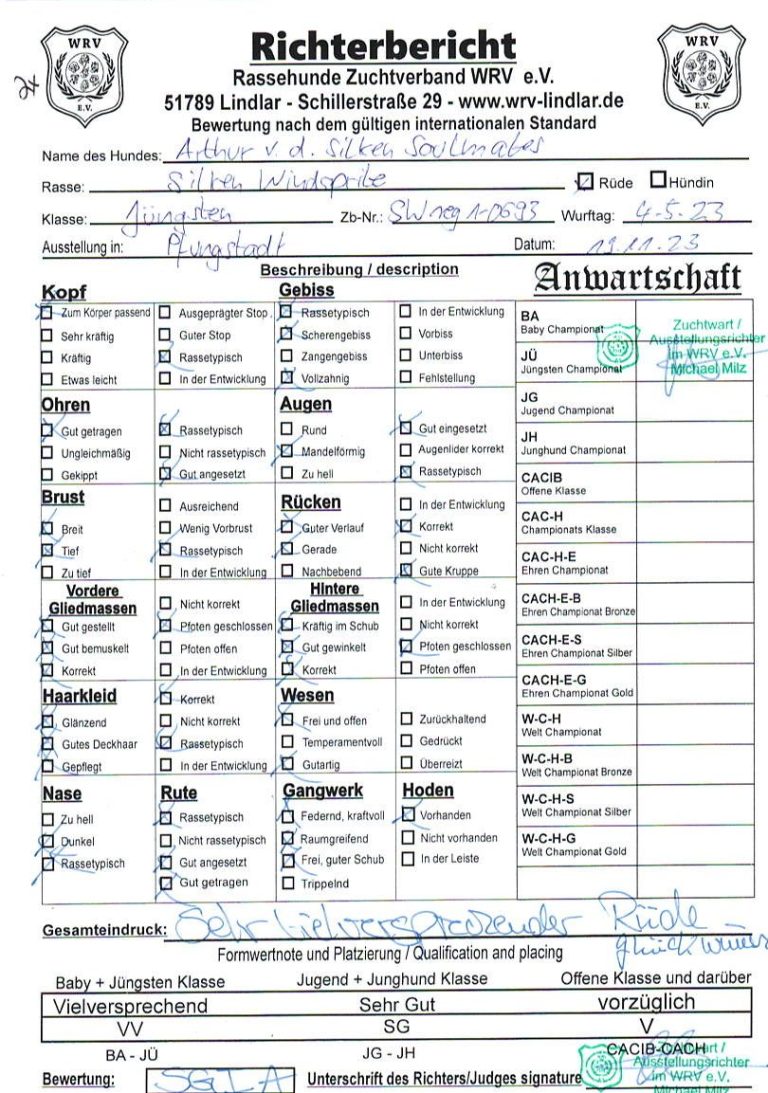 WRV
E.V.
Richterbericht
WRV
E.V.
Rassehunde Zuchtverband WRV e.V.
51789 Lindlar - Schillerstraße 29 - www.wrv-lindlar.de
Bewertung nach dem gültigen internationalen Standard
Name des Hundes: Arthur v. d. Silken Soulmates
Rasse: Silken Windsprite Rüde Hündin
Klasse: Jüngsten Zb-Nr.: SW reg 1-0693 Wurftag: 4-5.23
Ausstellung in: Pfungstadt Datum: 19.11.23
Beschreibung / description
Anwartschaft
Kopf
Zum Körper passend
Sehr kräftig
Kräftig
Etwas leicht
Ausgeprägter Stop
Guter Stop
Rassetypisch
In der Entwicklung
Gebiss
Rassetypisch
Scherengebiss
Zangengebiss
Vollzahnig
In der Entwicklung
Vorbiss
Unterbiss
Fehlstellung
Ohren
Gut getragen
Ungleichmäßig
Gekippt
Rassetypisch
Nicht rassetypisch
Gut angesetzt
Augen
Rund
Mandelförmig
Zu hell
Gut eingesetzt
Augenlider korrekt
Rassetypisch
Brust
Breit
Tief
Zu tief
Ausreichend
Wenig Vorbrust
Rassetypisch
In der Entwicklung
Rücken
Guter Verlauf
Gerade
Nachbebend
In der Entwicklung
Korrekt
Nicht korrekt
Gute Kruppe
Vordere
Gliedmassen
Gut gestellt
Gut bemuskelt
Korrekt
Nicht korrekt
Pfoten geschlossen
Pfoten offen
In der Entwicklung
Hintere
Gliedmassen
Kräftig im Schub
Gut gewinkelt
Korrekt
In der Entwicklung
Nicht korrekt
Pfoten geschlossen
Pfoten offen
Haarkleid
Glänzend
Gutes Deckhaar
Gepflegt
Korrekt
Nicht korrekt
Rassetypisch
In der Entwicklung
Wesen
Frei und offen
Temperamentvoll
Gutartig
Zurückhaltend
Gedrückt
Überreizt
Nase
Zu hell
Dunkel
Rassetypisch
Rute
Rassetypisch
Nicht rassetypisch
Gut angesetzt
Gut getragen
Gangwerk
Federnd, kraftvoll
Raumgreifend
Frei, guter Schub
Trippelnd
Hoden
Vorhanden
Nicht vorhanden
In der Leiste
BA
Baby Championat
JÜ
Jüngsten Championat
Zuchtwart /
Ausstellungsrichter
im WRV e.V.
Michael Milz
JG
Jugend Championat
JH
Junghund Championat
CACIB
Offene Klasse
CAC-H
Championats Klasse
CAC-H-E
Ehren Championat
CACH-E-B
Ehren Championat Bronze
CACH-E-S
Ehren Championat Silber
CACH-E-G
Ehren Championat Gold
W-C-H
Welt Championat
W-C-H-B
Welt Championat Bronze
W-C-H-S
Welt Championat Silber
W-C-H-G
Welt Championat Gold
Gesamteindruck: Sehr vielversprechender Rüde
Formwertnote und Platzierung / Qualification and placing
Baby + Jüngsten Klasse Jugend + Junghund Klasse Offene Klasse und darüber
Vielversprechend Sehr Gut vorzüglich
VV SG V
BA - JÜ JG - JH CACIB-CACH
Zuchtwart /
Ausstellungsrichter
im WRV e.V.
Michael Milz
Bewertung: Unterschrift des Richters/Judges signature